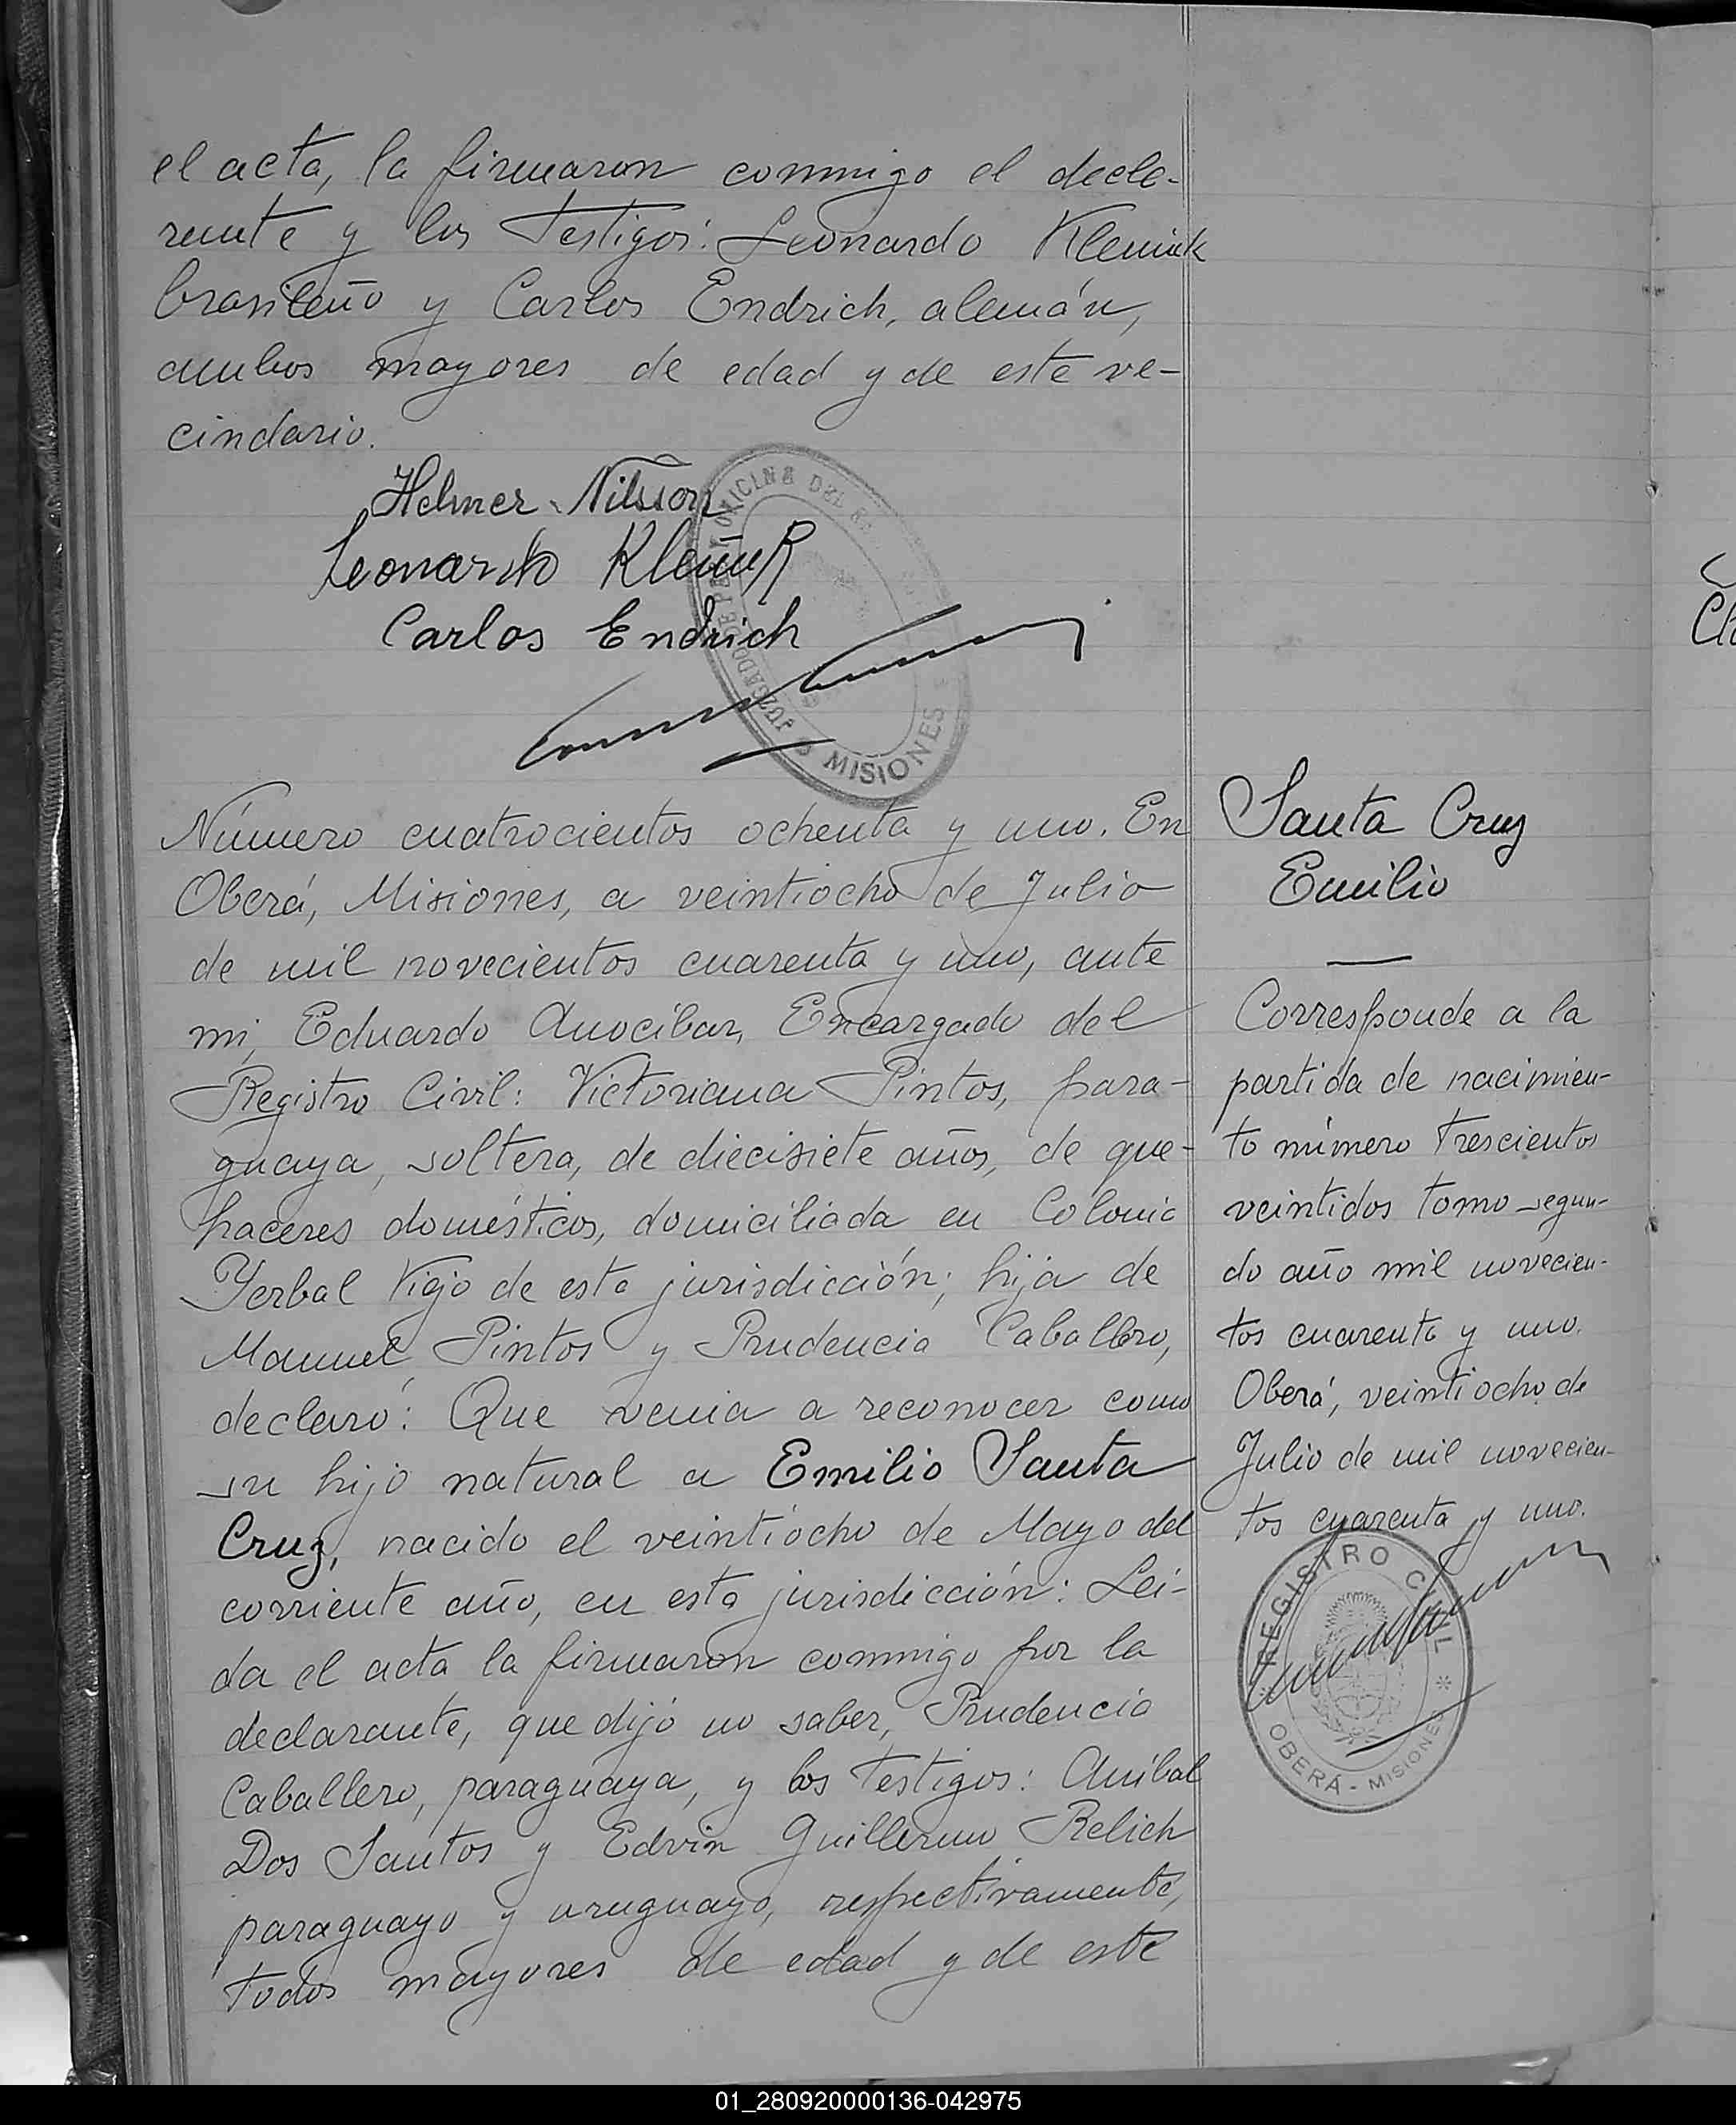 el acta, la firmaron conmigo el decla-
rante y los testigos: Leonardo Kleniuk
brasileño y Carlos Endrich, alemán,
ambos mayores de edad y de este ve-
cindario.
Helmer Nilsson
Leonardo
Carlos Endrich
JUZGADO DE PAZ Y OFICINA DEL
MISIONES
Número cuatrocientos ochenta y uno. En
Oberá, Misiones, a veintiocho de Julio
de mil novecientos cuarenta y uno, ante
mi, Eduardo Anocibar, Encargado del
Registro Civil: Victoriana Pintos, para-
guaya, soltera, de diecisiete años, de que-
haceres domésticos, domiciliada en Colonia
Yerbal Viejo de esta jurisdicción; hija de
Manuel Pintos y Prudencia Caballero,
declaró: Que venia a reconocer como
su hijo natural a Emilio Santa
Cruz, nacido el veintiocho de Mayo del
corriente año, en esta jurisdicción: Lei-
da el acta la firmaron conmigo por la
declarante, que dijó no saber, Prudencia
Caballero, paraguaya, y los testigos: Anibal
Dos Santos y Edvin Guillermo Relich
paraguayo y uruguayo, respectivamente,
todos mayores de edad y de este
Santa Cruz
Emilio
Corresponde a la
partida de nacimien-
to número trescientos
veintidos tomo segun-
do año mil novecien-
tos cuarenta y uno.
Oberá, veintiocho de
Julio de mil novecien-
tos cuarenta y uno.
REGISTRO CIVIL
OBERÁ - MISIONES
01_280920000136-042975